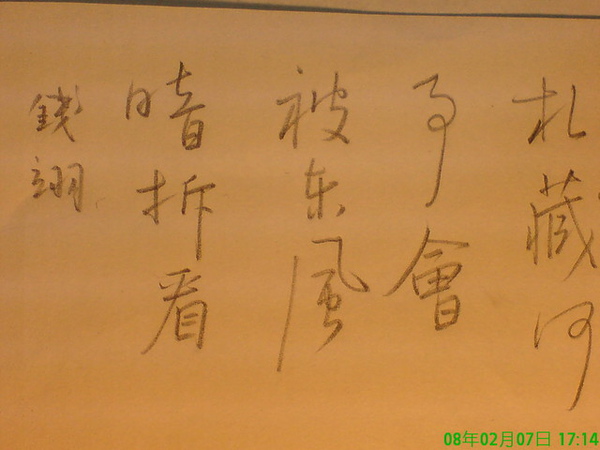 札藏何
事會
被东風
暗拆看
錢翊
08年02月07日 17:14